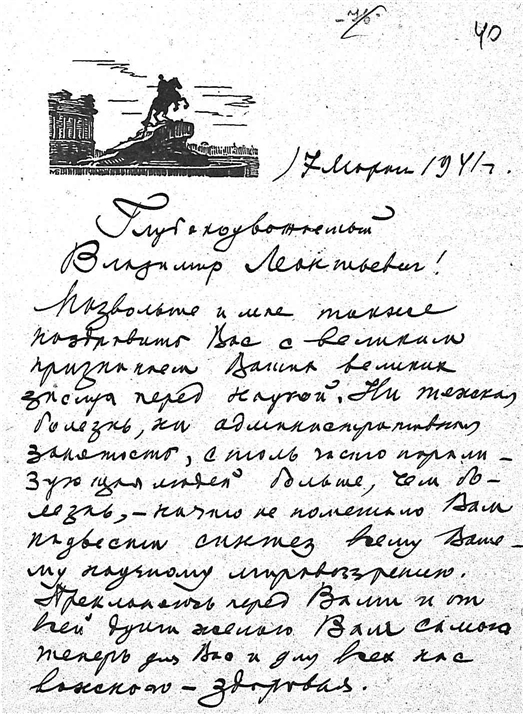 40
17 марта 1941 г.
Глубокоуважаемый
Владимир Леонтьевич!
Позвольте и мне также
поздравить Вас с великим
признанием Ваших великих
заслуг перед наукой. Ни тяжская
болезнь, ни административная
занятость, столь часто парали-
зующая людей больше, чем бо-
лезнь, – ничто не помешало Вам
подвести синтез всему Ваше-
му научному мировоззрению.
Преклоняюсь перед Вами и от
всей души желаю Вам самого
теперь для Вас и для всех нас
важного – здоровья.